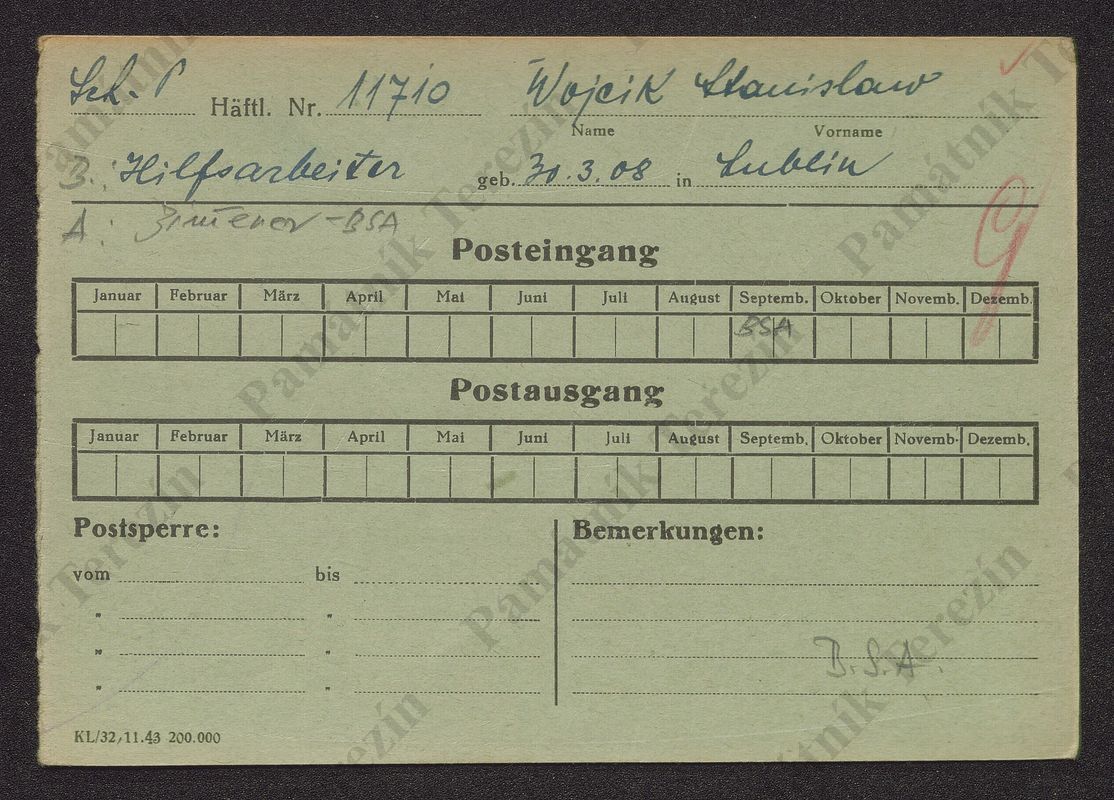 Sch. P Häftl. Nr. 11710 Wojcik Stanislaw
Name Vorname
B.: Hilfsarbeiter geb. 30.3.08 in Lublin
A: -BSA
9
Posteingang
Januar Februar März April Mai Juni Juli August Septemb. Oktober Novemb. Dezemb.
BSA
Postausgang
Januar Februar März April Mai Juni Juli August Septemb. Oktober Novemb. Dezemb.
Postsperre: Bemerkungen:
vom bis
" "
" "
" "
B.S.A.
KL/32/11.43 200.000
Památník Terezín